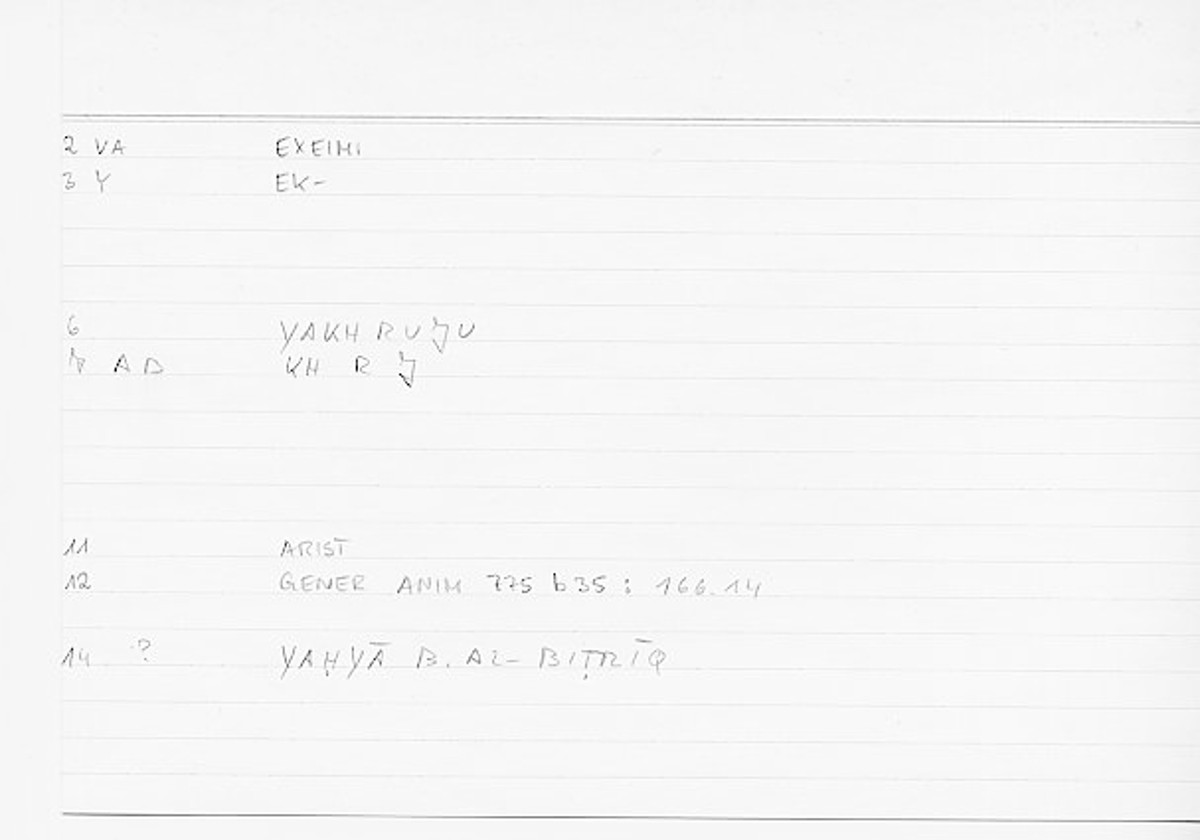 2 VA EXEIMI
3 Y EK-
6 YAKH RUJU
7 AB KH R J
11 ARIST
12 GENER ANIM 775 b35 : 166.14
14 ? YAḤYĀ B. AL-BIṬRĪQ